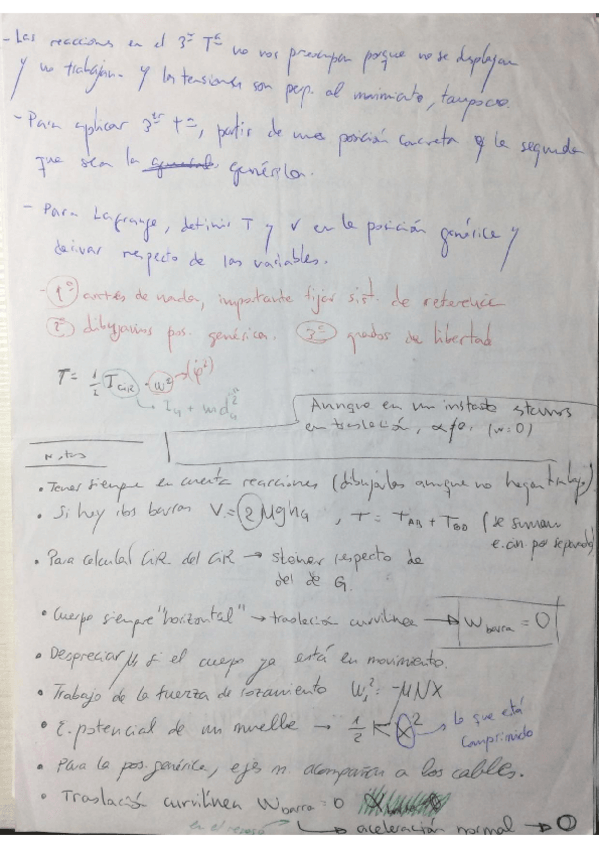 - Las reacciones en el 3er Tª no nos preocupan porque no se desplazan
y no trabajan. Y las tensiones son perp. al movimiento, tampoco.
- Para aplicar 3er tª, partir de una posición concreta y la segunda
que sea la genérica.
- Para Lagrange, definir T y V en la posición genérica y
derivar respecto de las variables.
- 1º antes de nada, importante fijar sist. de referencia
2º dibujamos pos. genérica. 3º grados de libertad
T = 1/2 I CIR · w² → (φ̇²)
I G + m d²
Aunque en un instante estemos
en traslación, α≠0, (w=0)
Notas
• Tener siempre en cuenta reacciones (dibujarlas aunque no hagan trabajo)
• Si hay dos barras V = 2MghG , T = T AB + T BD (se suman
e.cin por separado)
• Para calcular CIR. del CIR → steiner respecto de
del de G.
• Cuerpo siempre "horizontal" → traslación curvilínea → W barra = 0
• Despreciar μ, si el cuerpo ya está en movimiento.
• Trabajo de la fuerza de rozamiento W₁² = -μNX
• E. potencial de un muelle → 1/2 K X² → lo que está
comprimido
• Para la pos. genérica, ejes n. acompañan a los cables.
• Traslación curvilínea W barra = 0
en el reposo → aceleración normal → 0